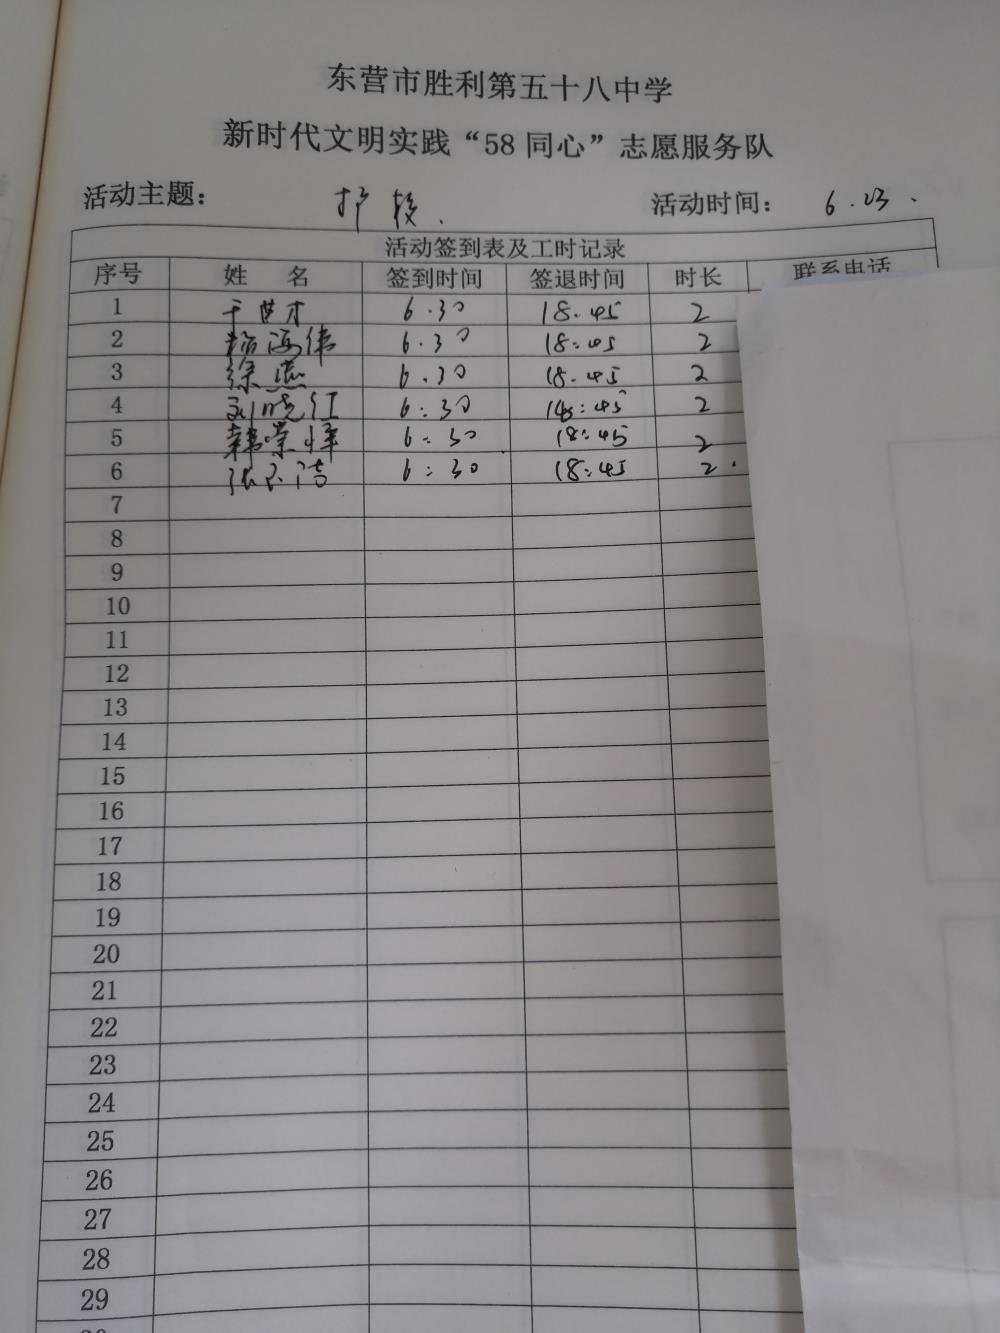 东营市胜利第五十八中学
新时代文明实践“58同心”志愿服务队
活动主题： 护校. 活动时间： 6.23.
活动签到表及工时记录
序号 姓 名 签到时间 签退时间 时长 联系电话
1 于世才 6.30 18.45 2
2 杨海伟 6.30 18:45 2
3 徐燕 6.30 18.45 2
4 刘晓红 6:30 18:45 2
5 韩崇辉 6:30 18:45 2
6 6:30 18:45 2.
7
8
9
10
11
12
13
14
15
16
17
18
19
20
21
22
23
24
25
26
27
28
29